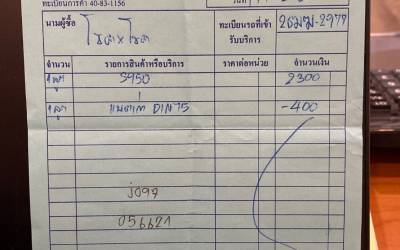 ทะเบียนการค้า 40-83-1156
นามผู้ซื้อ
ทะเบียนรถที่เข้ารับบริการ
2ฒฆ-2977
จำนวน รายการสินค้าหรือบริการ ราคาต่อหน่วย จำนวนเงิน
1 ลูก S950 2300
1 ลูก แบตเก่า DIN 75 -400
jo97
056621